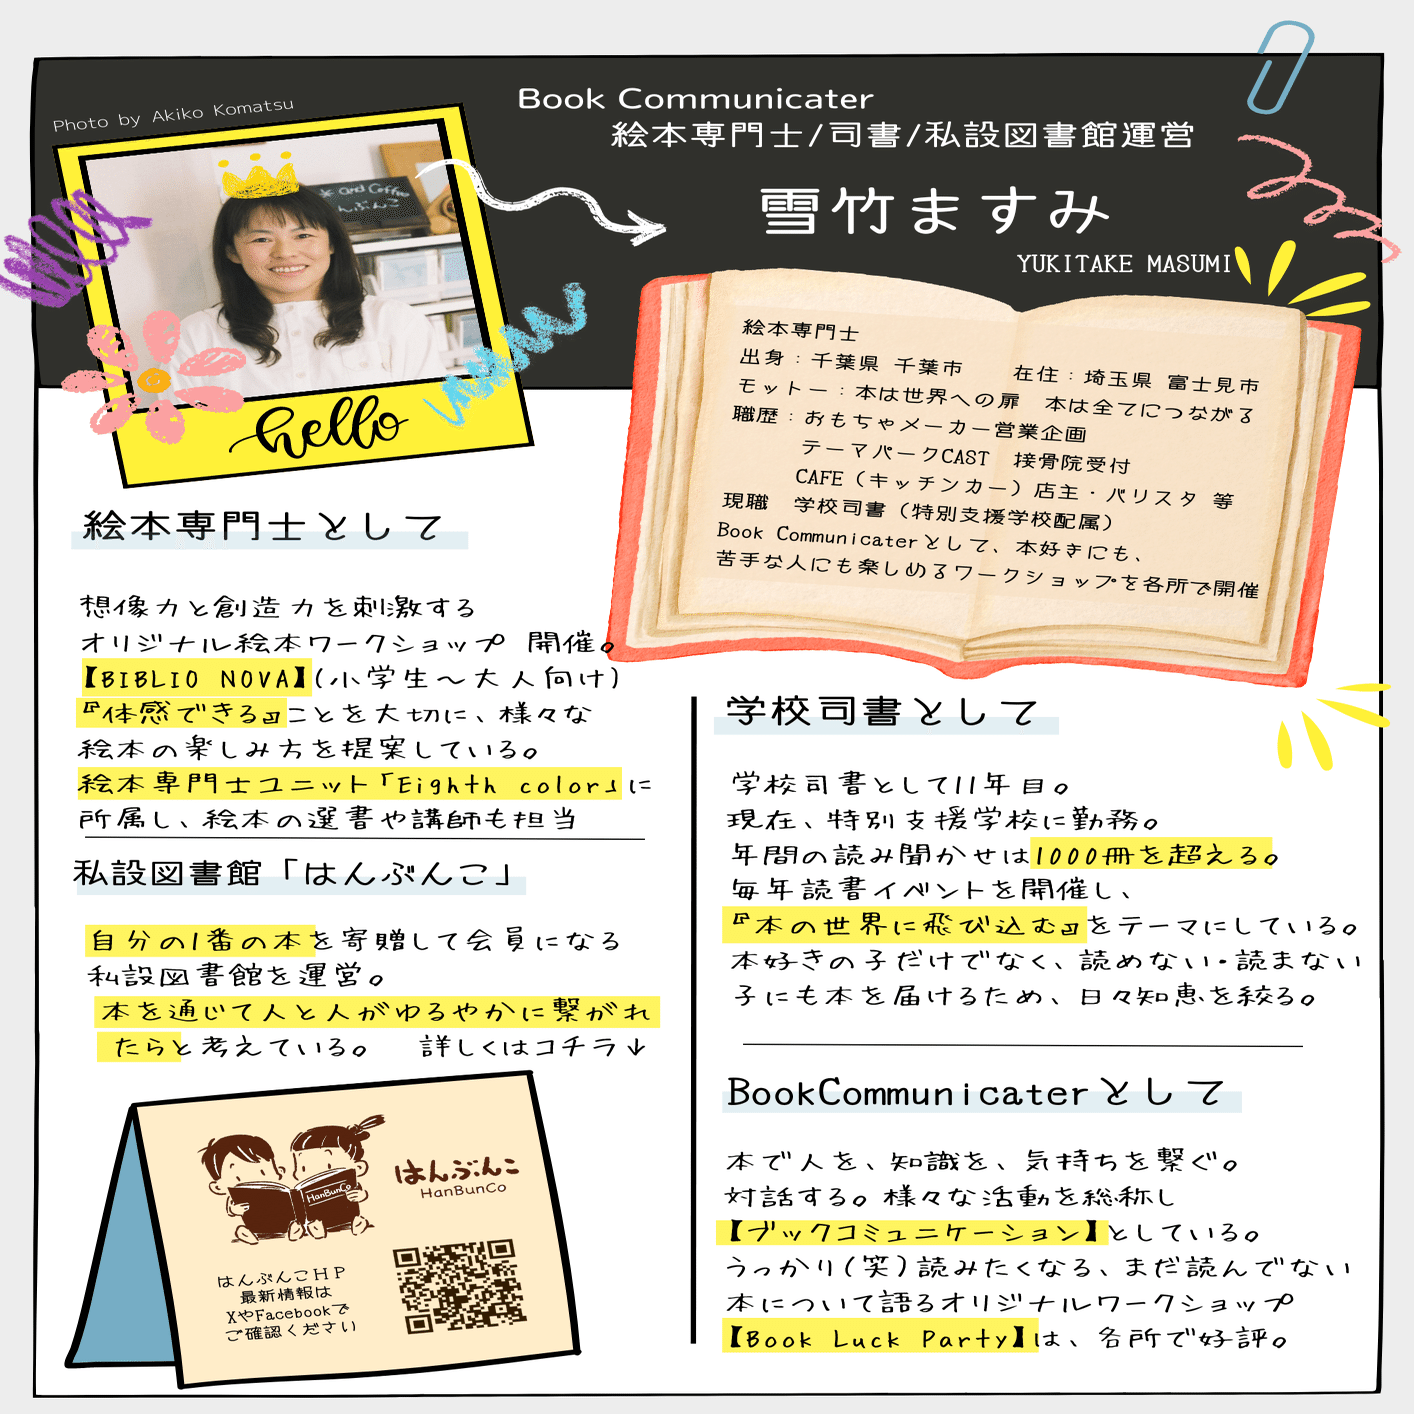 Photo by Akiko Komatsu
Book Communicater
絵本専門士/司書/私設図書館運営
雪竹ますみ
YUKITAKE MASUMI
and Coffee
んぶんこ
hello
絵本専門士
出身：千葉県 千葉市　在住：埼玉県 富士見市
モットー：本は世界への扉　本は全てにつながる
職歴：おもちゃメーカー営業企画
テーマパークCAST　接骨院受付
CAFE（キッチンカー）店主・バリスタ 等
現職　学校司書（特別支援学校配属）
Book Communicaterとして、本好きにも、
苦手な人にも楽しめるワークショップを各所で開催
絵本専門士として
想像力と創造力を刺激する
オリジナル絵本ワークショップ 開催。
【BIBLIO NOVA】(小学生～大人向け)
『体感できる』ことを大切に、様々な
絵本の楽しみ方を提案している。
絵本専門士ユニット「Eighth color」に
所属し、絵本の選書や講師も担当
私設図書館「はんぶんこ」
自分の1番の本を寄贈して会員になる
私設図書館を運営。
本を通じて人と人がゆるやかに繋がれ
たらと考えている。　詳しくはコチラ↓
HanBunCo
はんぶんこ
HanBunCo
はんぶんこHP
最新情報は
XやFacebookで
ご確認ください
学校司書として
学校司書として11年目。
現在、特別支援学校に勤務。
年間の読み聞かせは1000冊を超える。
毎年読書イベントを開催し、
『本の世界に飛び込む』をテーマにしている。
本好きの子だけでなく、読めない・読まない
子にも本を届けるため、日々知恵を絞る。
BookCommunicaterとして
本で人を、知識を、気持ちを繋ぐ。
対話する。様々な活動を総称し
【ブックコミュニケーション】としている。
うっかり(笑)読みたくなる、まだ読んでない
本について語るオリジナルワークショップ
【Book Luck Party】は、各所で好評。